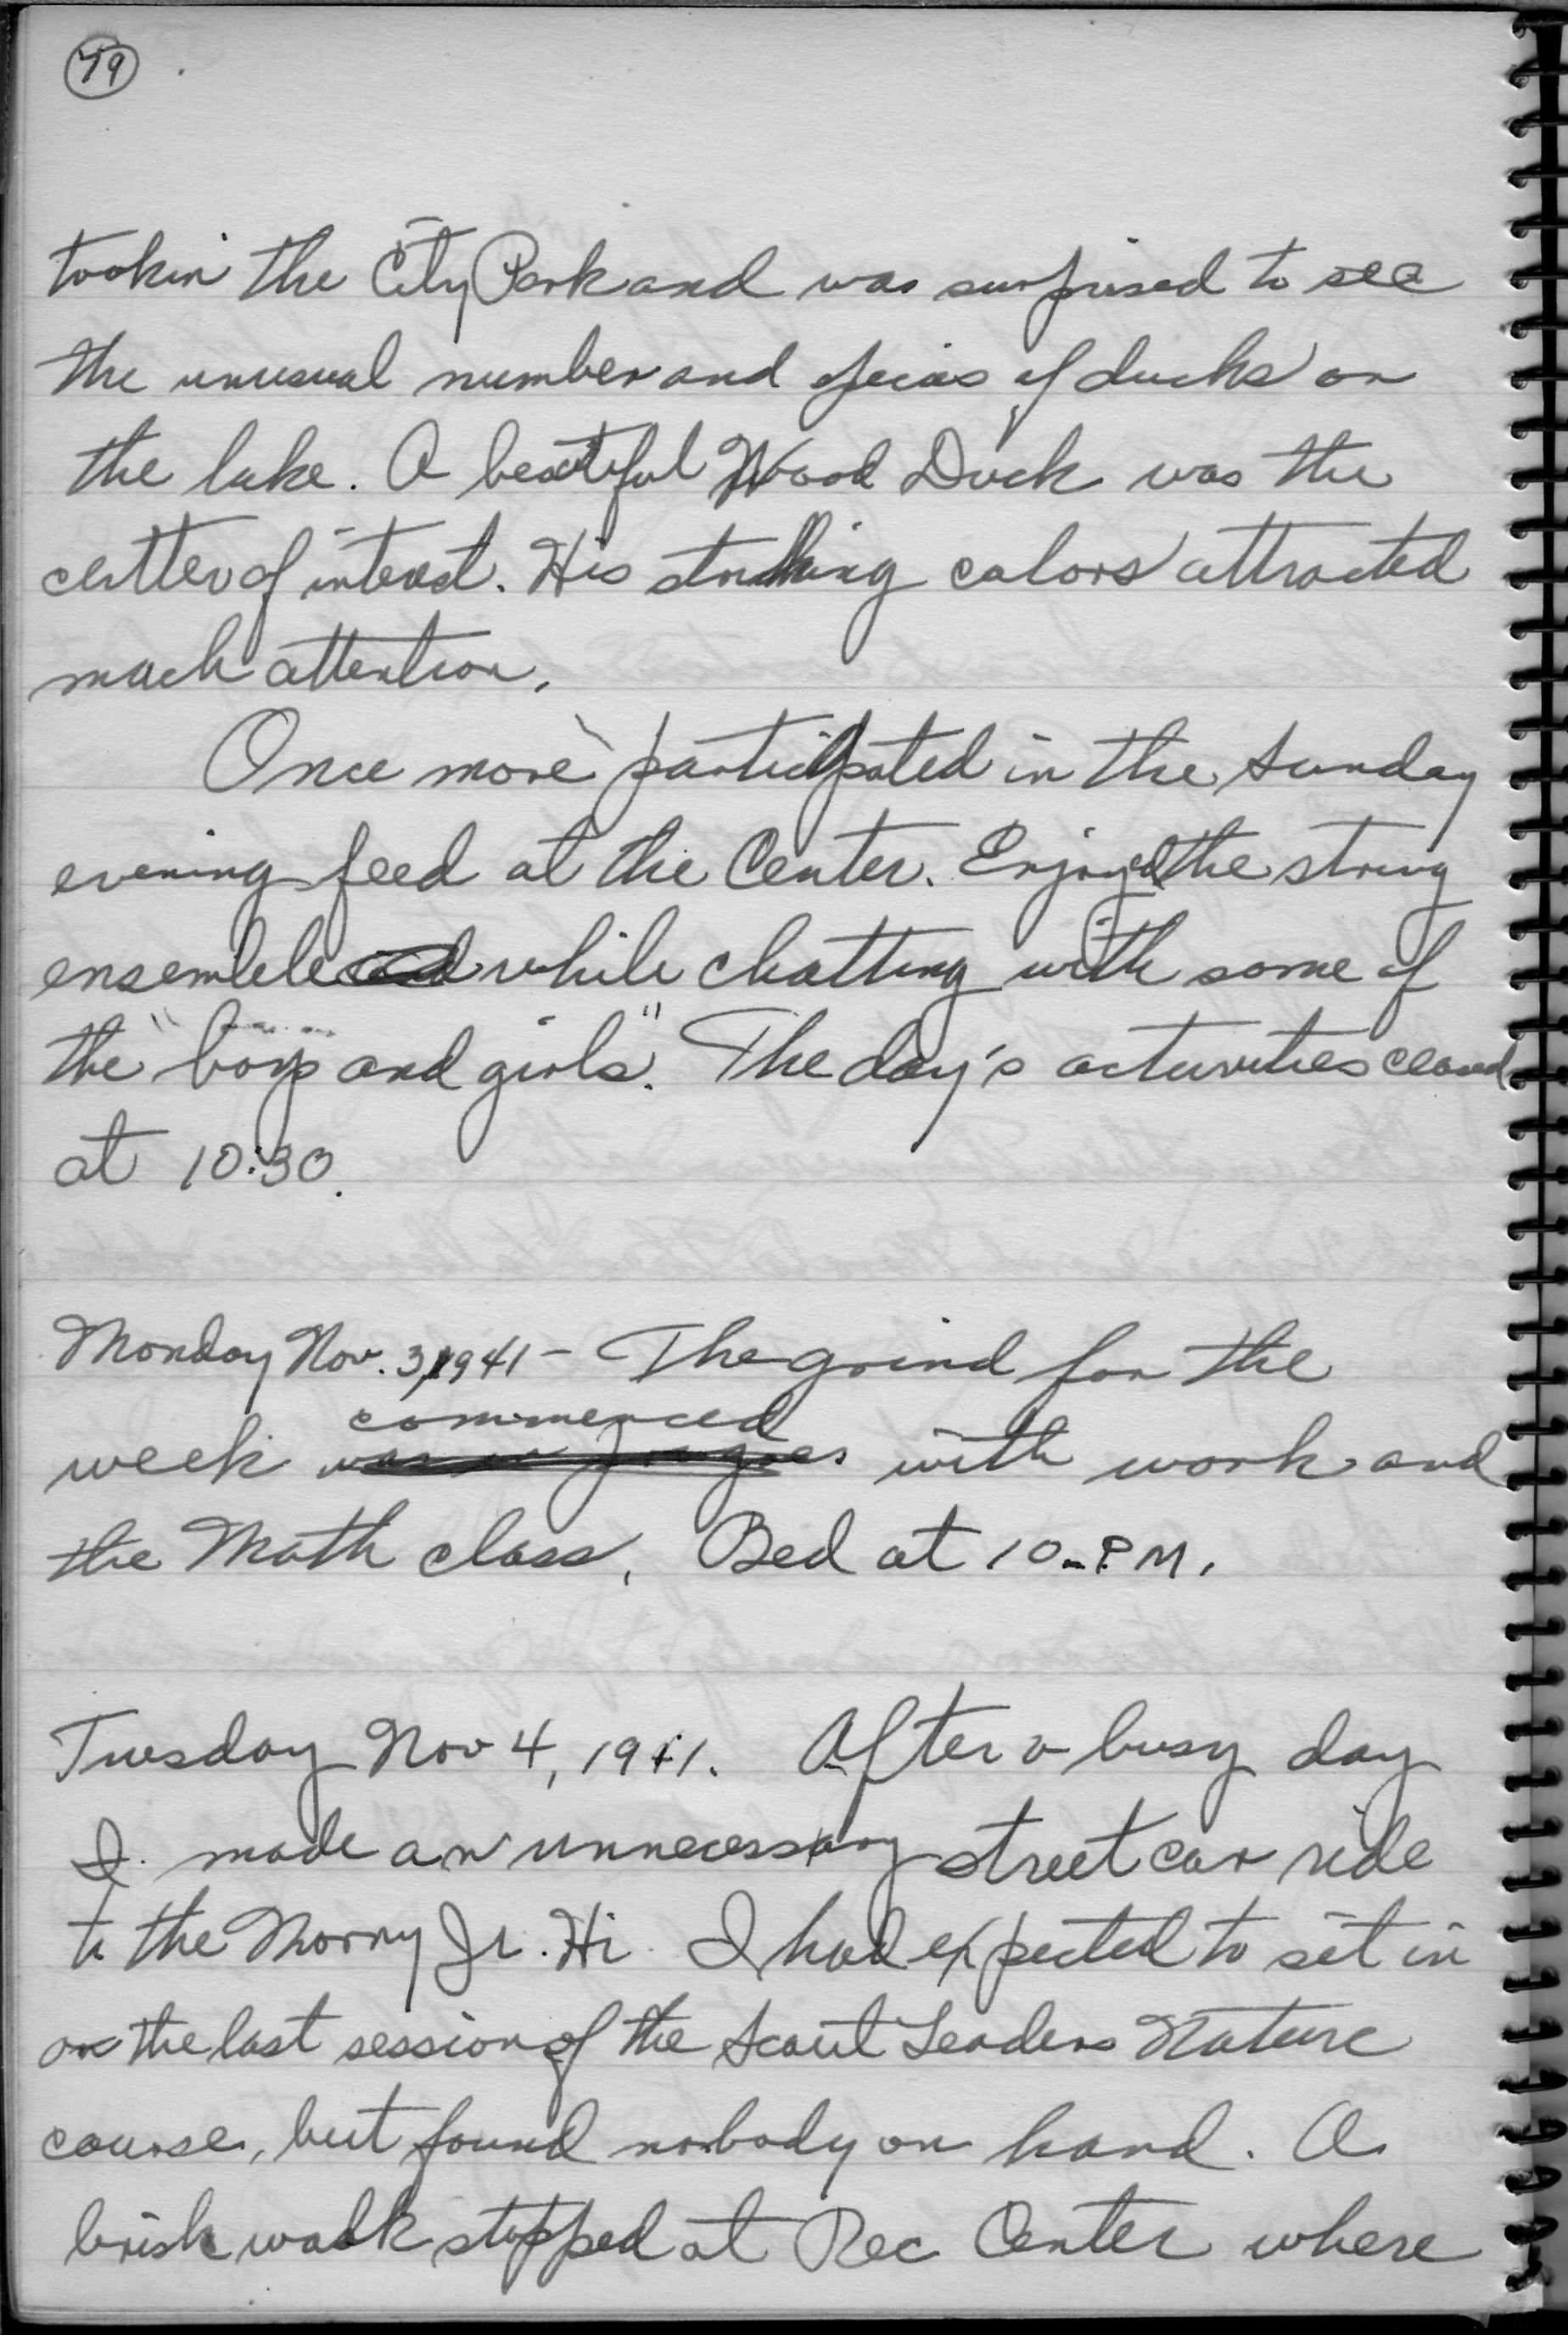 79
took in the City Park and was surprised to see
the unusual number and specias of ducks on
the lake. A beautiful Wood Duck was the
center of interest. His striking colors attracted
much attention.
Once more participated in the Sunday
evening feed at the Center. Enjoyed the string
ensemble while chatting with some of
the "boys and girls". The day's activities ceased
at 10:30.
Monday Nov. 3, 1941 - The grind for the
commenced
week was in with work and
the Math class. Bed at 10 P.M.
Tuesday Nov 4, 1941. After a busy day
I made an unnecessary street car ride
to the Jr. Hi. I had expected to sit in
on the last session of the Scout Leaders Nature
course, but found nobody on hand. A
brisk walk stopped at Rec Center where